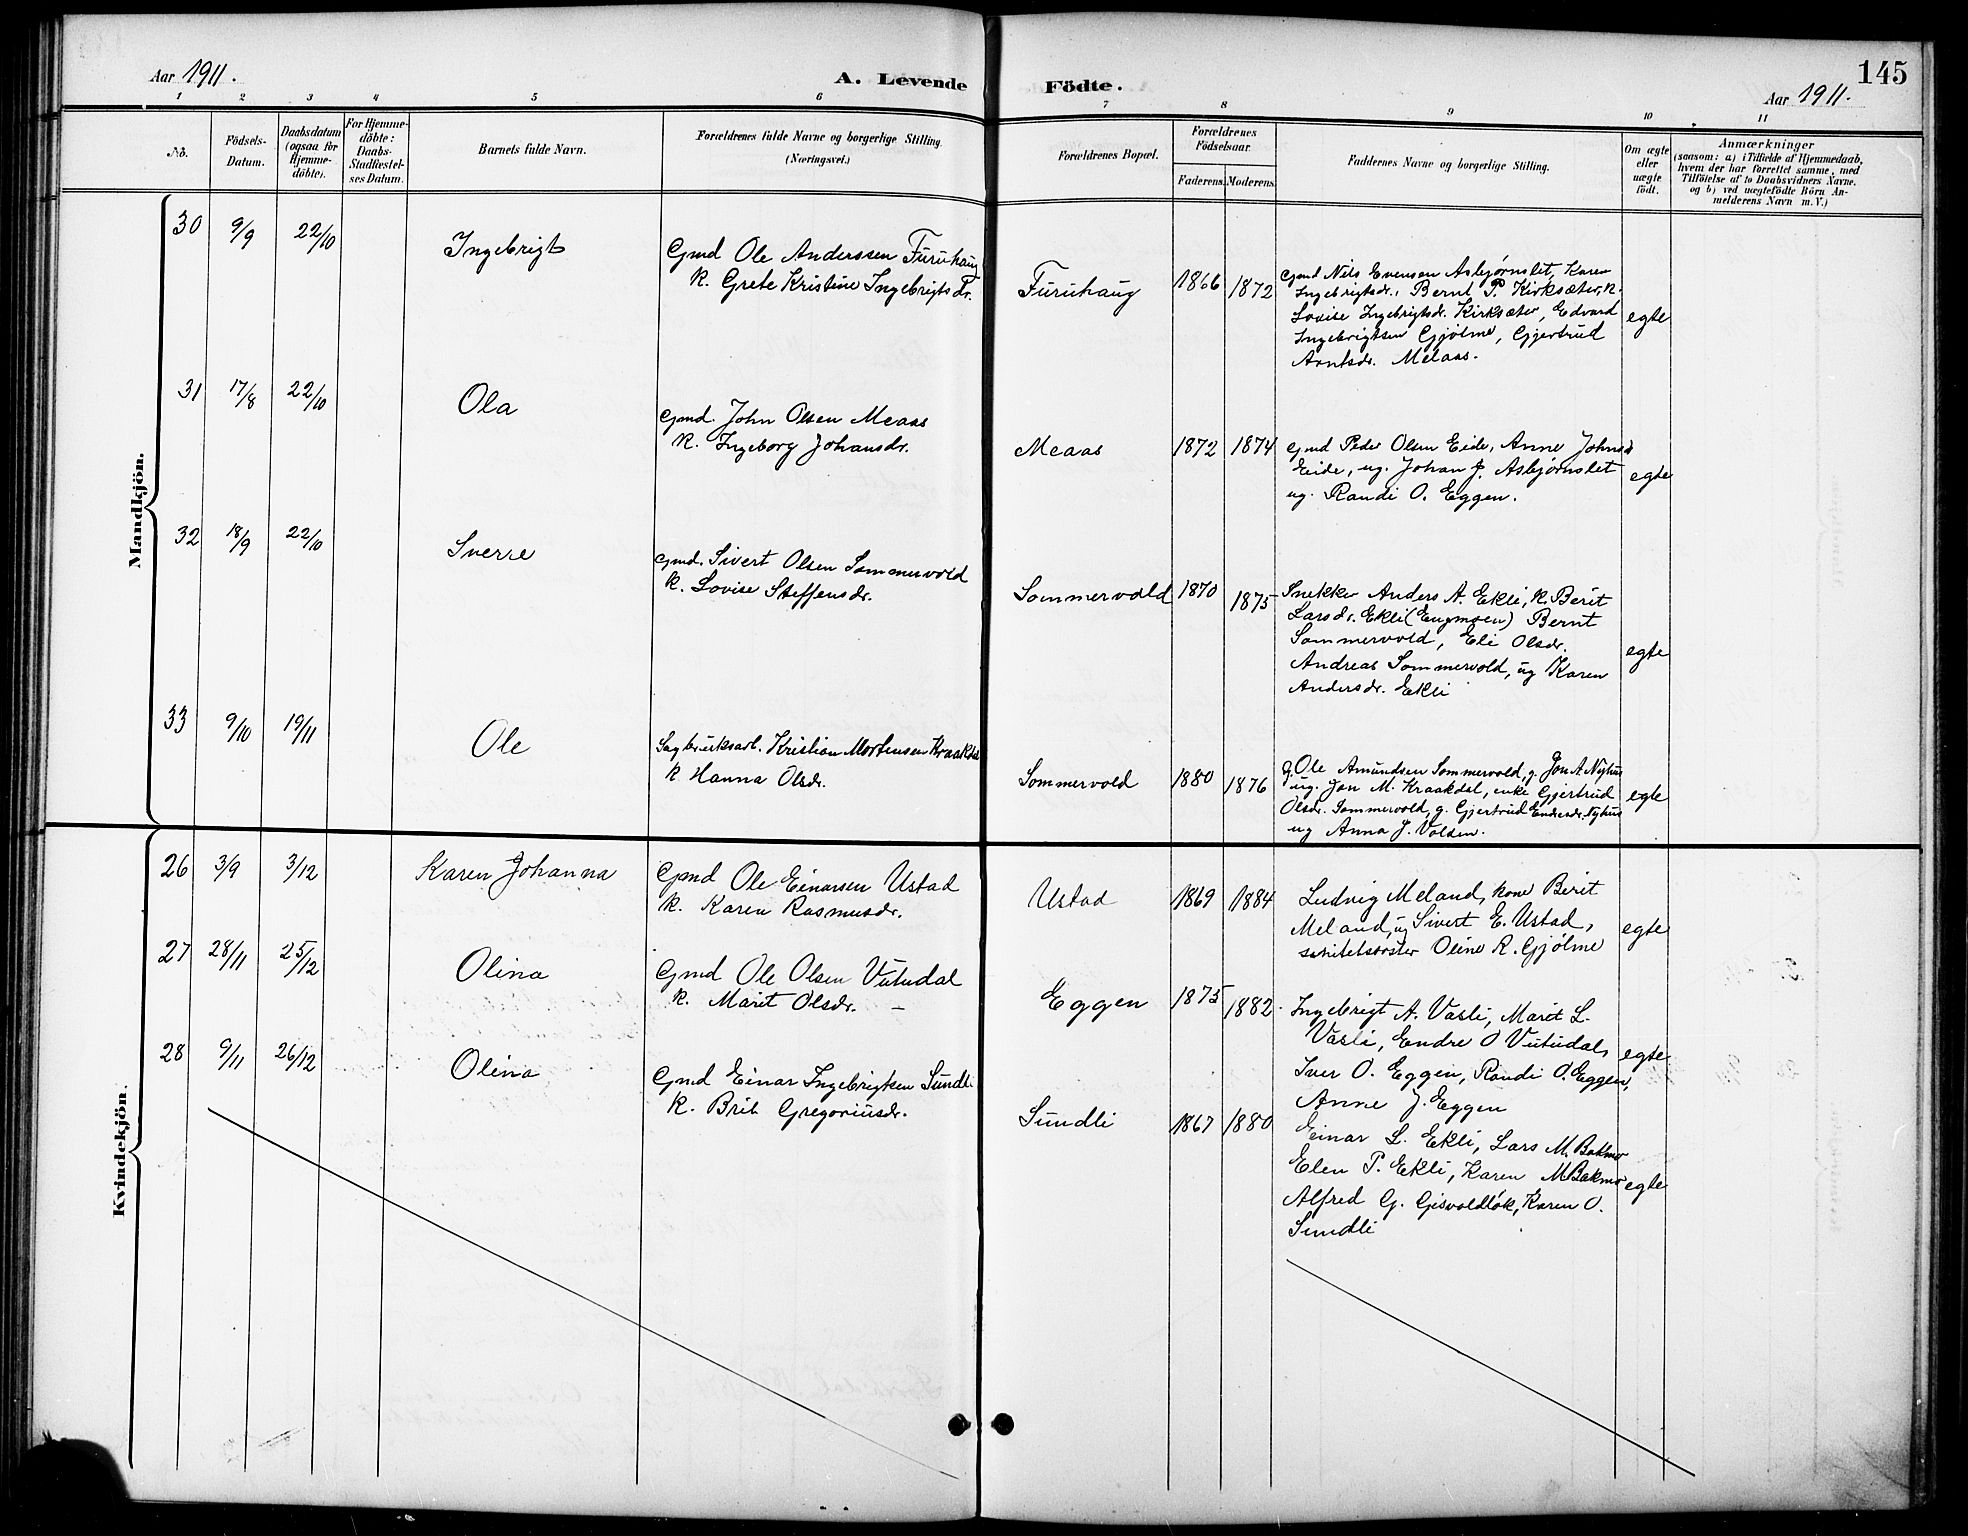 Aar 1911.
A. Levende
Födte.
Aar 1911.
145
1 2 3 4 5 6 7 8 9 10 11
No.
Födsels-
Datum.
Daabsdatum
(ogsaa for
Hjemme-
döbte).
For Hjemme-
döbte:
Daabs-
Stadfæstel-
ses Datum.
Barnets fulde Navn.
Forældrenes fulde Navne og borgerlige Stilling.
(Næringsvei.)
Forældrenes Bopæl.
Forældrenes
Födselsaar.
Faderens. Moderens.
Faddernes Navne og borgerlige Stilling.
Om ægte
eller
uægte
födt.
Anmærkninger
(saasom: a) i Tilfælde af Hjemmedaab,
hvem der har forrettet samme, med
Tilföielse af to Daabsvidners Navne.
og b) ved uægtefödte Börn An-
melderens Navn m. V.)
Mandkjön.
30 9/9 22/10 Ingebrigt
Gmd Ole Anderssen Furuhaug
K. Grete Kristine Ingebrigtsdr.
Furuhaug 1866 1872
Gmd Nils Evensen Asbjørnslet, Karen
Ingebrigtsdr., Bernt P. Kirksæter, K.
Lovise Ingebrigtsdr. Kirksæter, Edvard
Ingebrigtsen Gjølme, Gjertrud
Arntsdr. Melaas.
egte
31 17/8 22/10 Ola
Gmd. John Olsen Meaas
K. Ingeborg Johansdr.
Meaas 1872 1874
Gmd Peder Olsen Eide, Anne Johnsd
Eide, ug. Johan J. Asbjørnslet
ug. Randi O. Eggen.
egte
32 18/9 22/10 Sverre
Gmd. Sivert Olsen Sommervold
K. Lovise Steffensdr.
Sommervold 1870 1875
Snekker Anders A. Ekli, K. Berit
Larsdr. Ekli (Engmoen) Bernt
Sommervold, Eli Olsdr.
Andreas Sommervold, ug Karen
Andersdr. Ekli
egte
33 9/10 19/11 Ole
Sagbruksarb. Kristian Mortensen Kraakdal
K Hanna Olsdr.
Sommervold 1880 1876
g. Ole Amundsen Sommervold, g. Jon A. Nyhus
ug. Jon M. Kraakdal, enke Gjertrud
Olsdr. Sommervold, g. Gjertrud Endresdr. Nyhus
ug Anna J. Volden.
egte
Kvindekjön.
26 3/9 3/12 Karen Johanna
Gmd Ole Einarsen Ustad
K. Karen Rasmusdr.
Ustad 1869 1884
Ludvig Meland, kone Berit
Meland, ug Sivert E. Ustad,
sanitetssøster Oline R. Gjølme
egte
27 28/11 25/12 Olina
Gmd Ole Olsen Vutudal
K. Marit Olsdr. –
Eggen 1875 1882
Ingebrigt A. Vasli, Marit L.
Vasli, Endre O Vutudal,
Iver O. Eggen, Randi O. Eggen,
Anne J. Eggen
egte
28 9/11 26/12 Olina
Gmd Einar Ingebrigtsen Sundli
K. Brit Gregoriusdr.
Sundli 1867 1880
Einar L. Ekli, Lars M. Bakmo
Elen P. Ekli, Karen M Bakmo
Alfred G. Gisvoldløk, Karen O.
Sundli
egte